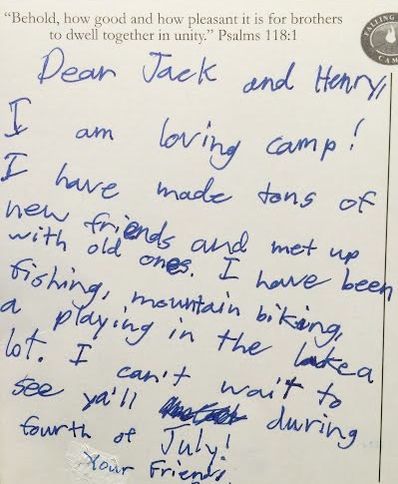 “Behold, how good and how pleasant it is for brothers
to dwell together in unity.” Psalms 118:1
FALLING
CAM
Dear Jack and Henry,
I am loving camp!
I have made tons of
new friends and met up
with old ones. I have been
fishing, mountain biking,
a playing in the lake a
lot. I can't wait to
see ya'll during
fourth of July!
Your Friend,